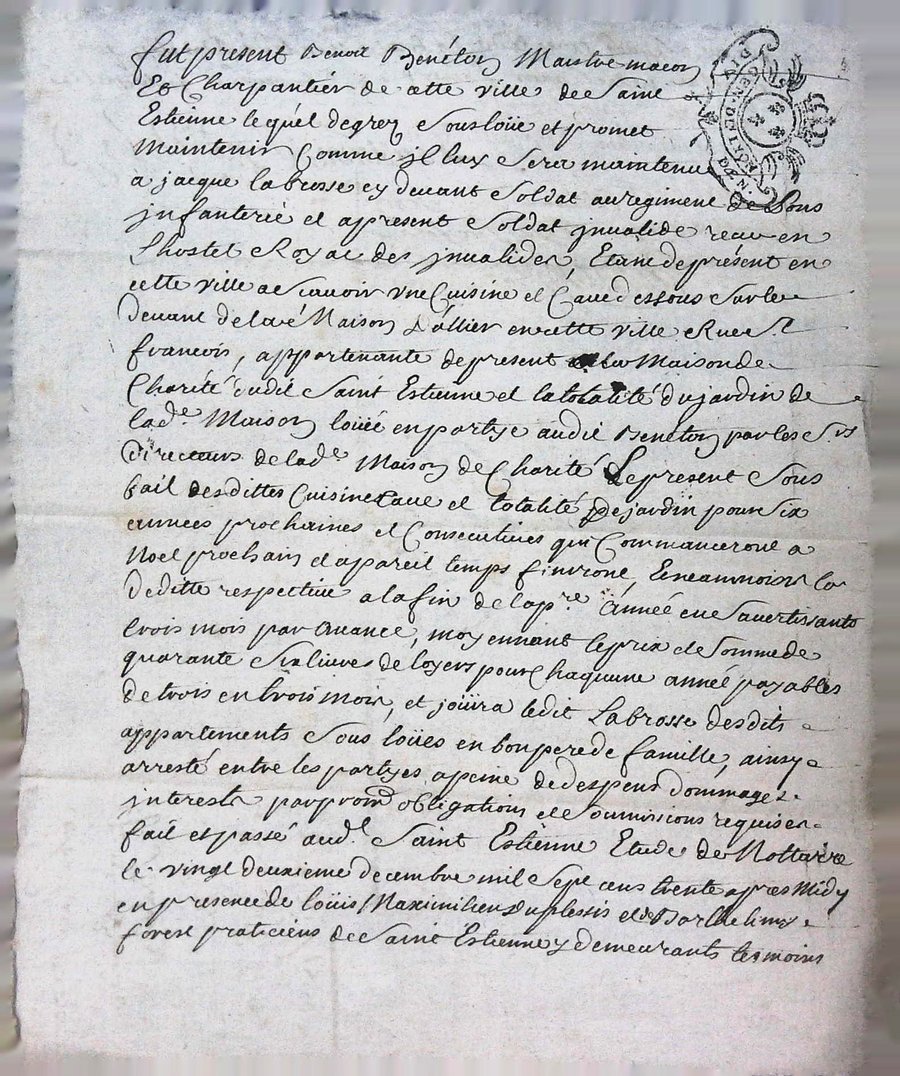 fut present Benoit Benéton Maistre macon
Et Charpantier de cette ville de Saint
Estienne lequel de grez Sousloüe et promet
Maintenir Comme jl luy Sera maintenu
a jacque labrosse cy devant Soldat au regiment de
jnfanterie et apresent Soldat jnualide receu en
Lhostel Royal des jnualides, Etant deprésent en
cette ville a Scauoir vne Cuisine et Caue dessous Sur le
deuant de la Maison d'allier en cette ville Rue St
francois, appartenante depresent a la Maison de
Charité dudit Saint Estienne et la totalité du jardin de
lade Maison loüéé en partye audit Benéton par les Srs
Directeurs de lade Maison de Charité Le present Sous
bail desdittes Cuisine Caue et totalité de jardin pour Six
années prochaines et Consecutiues qui Commanceront a
Noel prochain et apareil temps finiront, Et neanmoins la
deditte respectiue a la fin de la pre Année en Sauertissants
trois mois par auance, moyennant le prix et Somme de
quarante Six liures de loyers pour Chaquune année payables
de trois en trois mois, et joüira ledit Labrosse desdits
appartements Sous loüés en bon pere de famille, ainsy
arresté entre les partyes apeine de despens dommages
interests par obligations et Soumissions requises
fait et passé audt Saint Estienne Etude de Nottaire
le vingt deuxieme decembre mil Sept cens trente apres Midy
en presence de loüis Maximilien duplessis et de Barthelimy
forest praticiens de Saint Estienne y demeurants tesmoins
GEN. DE LION